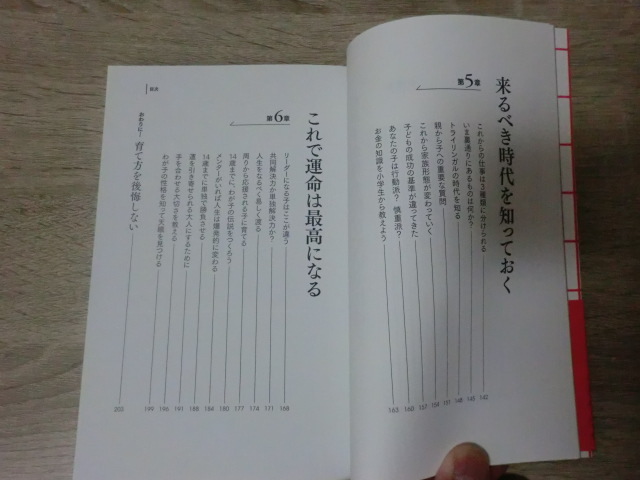 第5章
来るべき時代を知っておく
これからの仕事は3種類に分けられる 142
いま裏通りにあるものは何か? 145
トライリンガルの時代を知る 148
親から子への重要な質問 151
これから家族形態が変わっていく 154
子どもの成功の基準が違ってきた 157
あなたの子は行動派? 慎重派? 160
お金の知識を小学生から教えよう 163
第6章
これで運命は最高になる
リーダーになる子はここが違う 168
共同解決力か単独解決力か? 171
人生をなるべく易しく渡る 174
周りから応援される子に育てる 177
14歳までに、わが子の伝説をつくろう 180
メンターがいれば人生は爆発的に変わる 184
14歳までに単独で勝負させる 188
運を引き寄せられる大人にするために 191
手を合わせる大切さを教える 196
わが子の性格を知って天職を見つける 199
おわりに― 育て方を後悔しない 203
目次